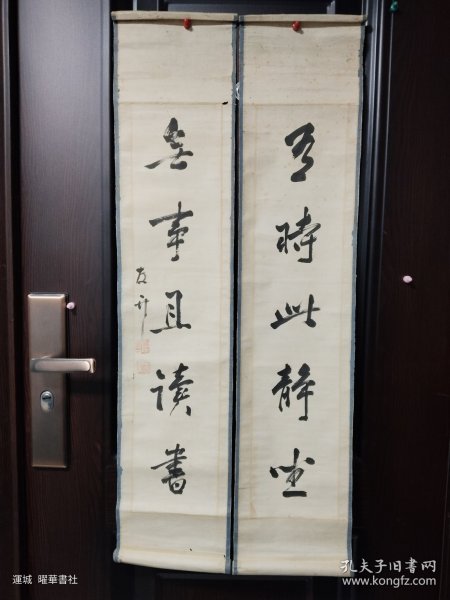 有時此靜坐
無事且讀書
友卿
運城 曜華書社
孔夫子旧书网
www.kongfz.com